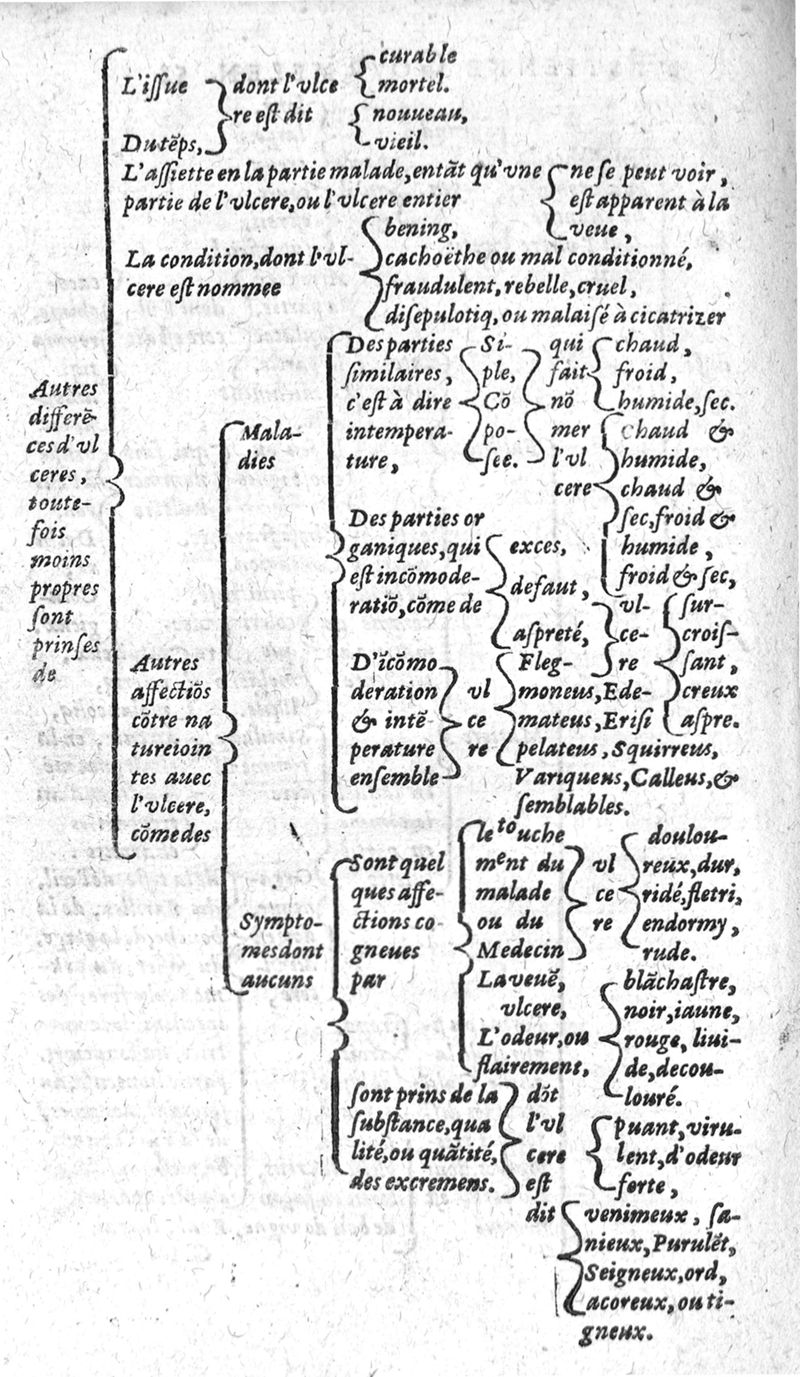 Autres
differē-
ces d'vl
ceres,
toute-
fois
moins
propres
sont
prinses
de
L'issue
Du tēps,
dont l'vlce
re est dit
curable
mortel.
nouueau,
vieil.
L'assiette en la partie malade, entāt qu'vne
partie de l'vlcere, ou l'vlcere entier
ne se peut voir,
est apparent à la
veue,
La condition, dont l'vl-
cere est nommee
bening,
cachoëthe ou mal conditionné,
fraudulent, rebelle, cruel,
disepulotiq, ou malaisé à cicatrizer
Autres
affectiōs
cōtre na
ture ioin
tes auec
l'vlcere,
cōme des
Mala-
dies
Des parties
similaires,
c'est à dire
intempera-
ture,
Si-
ple,
Cō
po-
see.
qui
fait
nō
mer
l'vl
cere
chaud,
froid,
humide, sec.
chaud &
humide,
chaud &
sec, froid &
humide,
froid & sec,
Des parties or
ganiques, qui
est incōmode-
ratiō, cōme de
exces,
defaut,
aspreté,
vl-
ce-
re
sur-
crois-
sant,
creux
aspre.
D'īcōmo
deration
& intē
perature
ensemble
vl
ce
re
Fleg-
moneus, Ede-
mateus, Erisi
pelateus, Squirreus,
Variqueus, Calleus, &
semblables.
Sympto-
mes dont
aucuns
Sont quel
ques affe-
ctions co
gneues
par
le touche
ment du
malade
ou du
Medecin
vl
ce
re
doulou-
reux, dur,
ridé, fletri,
endormy,
rude.
La veuë,
vlcere,
L'odeur, ou
flairement,
blāchastre,
noir, iaune,
rouge, liui-
de, decou-
louré.
sont prins de la
substance, qua
lité, ou quātité,
des excremens.
dōt
l'vl
cere
est
dit
puant, viru-
lent, d'odeur
forte,
venimeux, sa-
nieux, Purulēt,
Seigneux, ord,
acoreux, ou ti-
gneux.